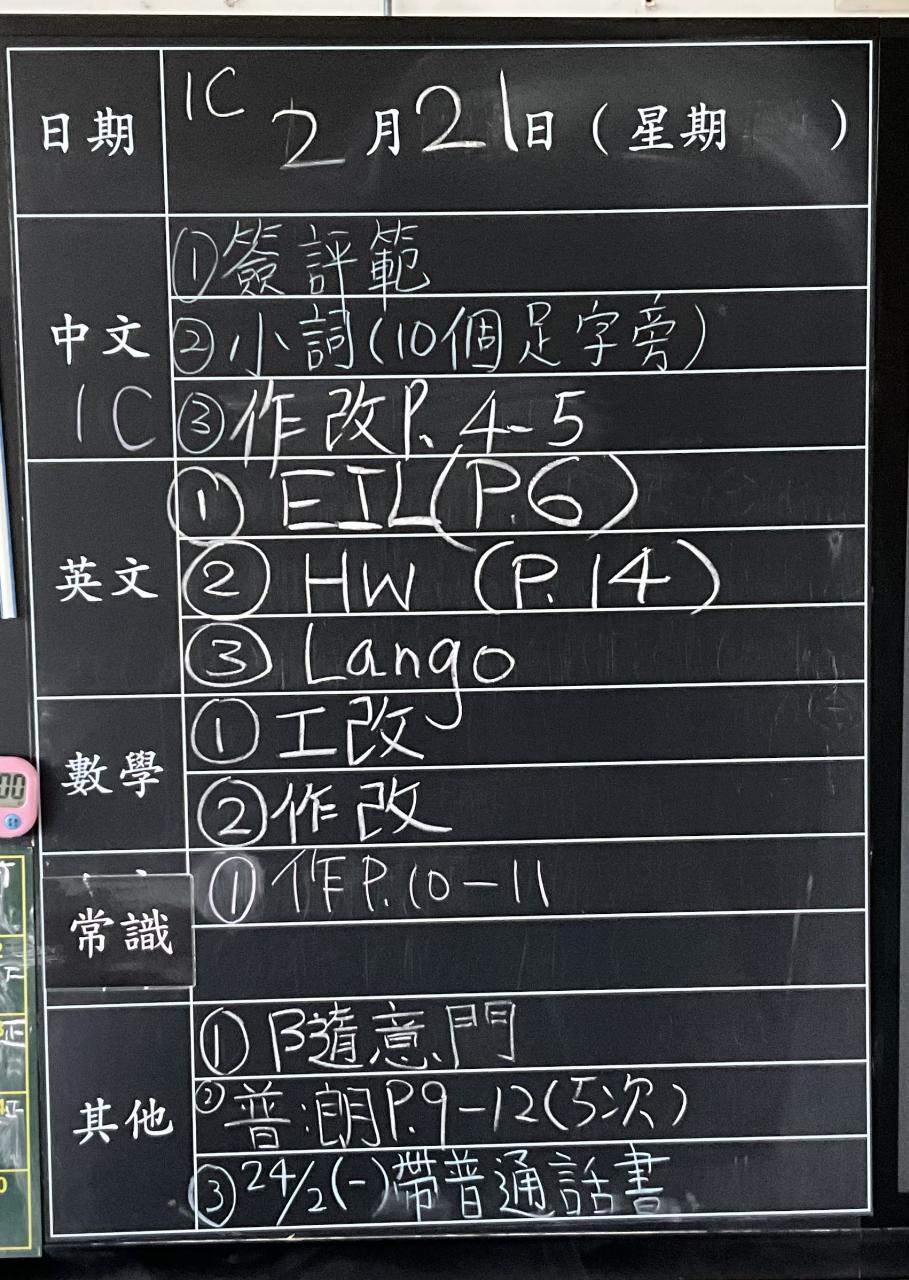 日期 1C 2月21日(星期 )
中文 1C
①簽評範
②小詞(10個足字旁)
③作改P.4-5
英文
① EIL(P.6)
② HW (P.14)
③ Lango
數學
①工改
②作改
常識
①作P.10-11
其他
①隨意門
②普:朗P.9-12(5次)
③24/2(一)帶普通話書